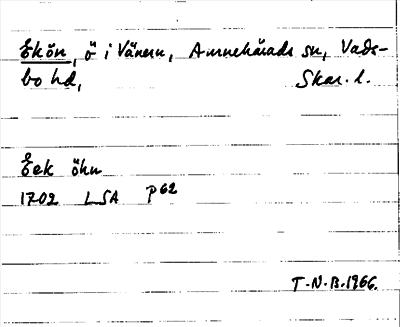 Ekön, ö i Vänern, Amnehärads sn, Vads-
bo hd, Skar. l.
Eek öhn
1702 LSA P62
T.N.B. 1966.